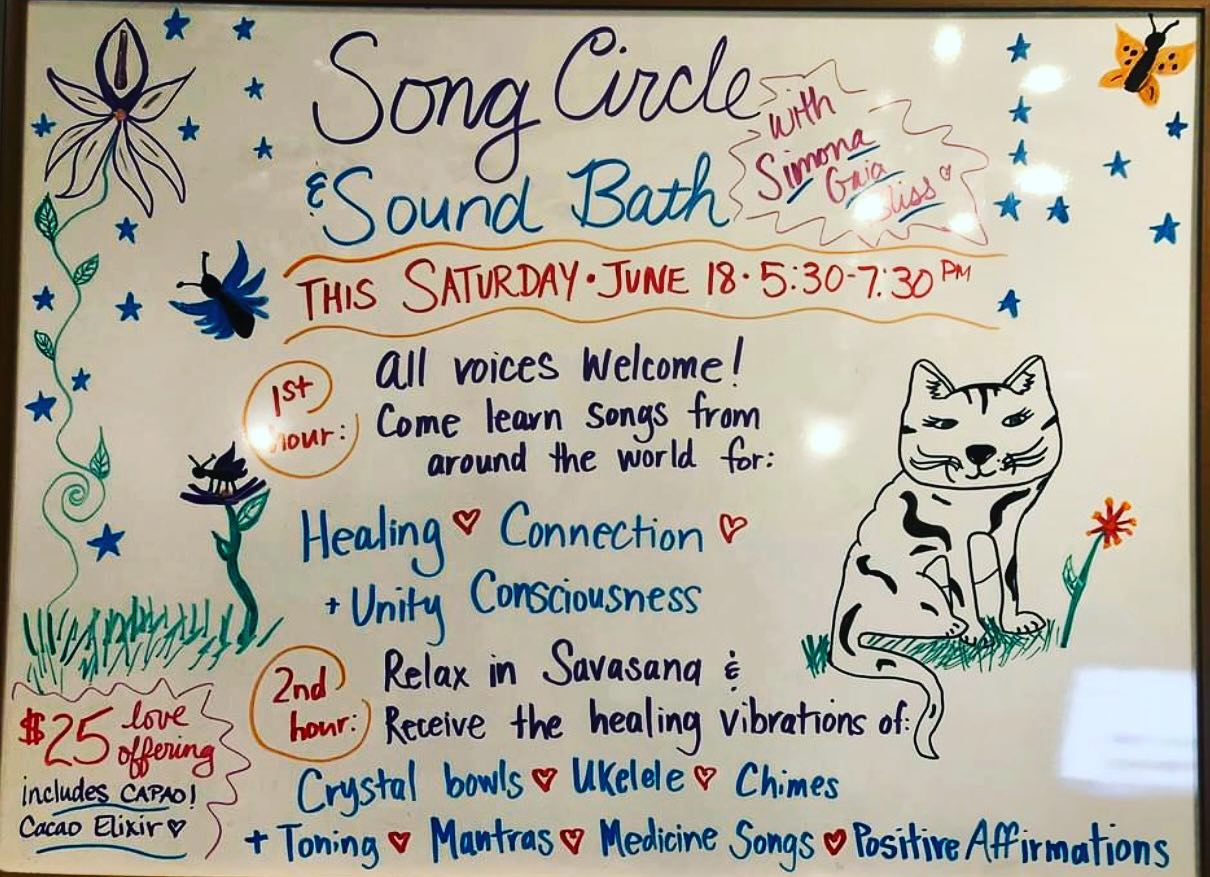 Song Circle
& Sound Bath
with
Simona
Gaia
Bliss
THIS SATURDAY • JUNE 18 • 5:30-7:30 PM
1st
hour:
all voices Welcome!
Come learn songs from
around the world for:
Healing ♥ Connection ♥
+ Unity Consciousness
2nd
hour:
Relax in Savasana &
Receive the healing vibrations of:
Crystal bowls ♥ UKelele ♥ Chimes
+ Toning ♥ Mantras ♥ Medicine Songs ♥ Positive Affirmations
$25 love
offering
includes CAPAO!
Cacao Elixir ♥